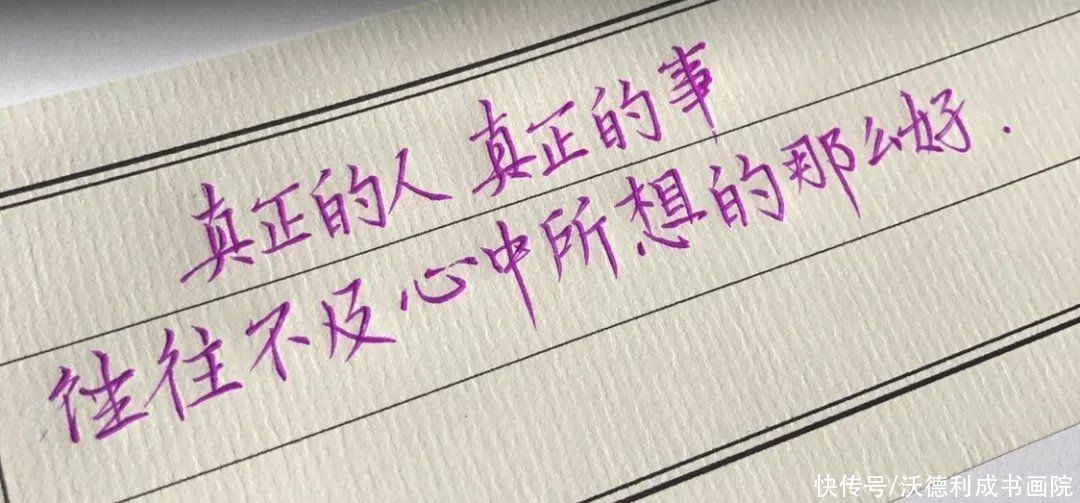 真正的人 真正的事
往往不及心中所想的那么好.
快传号/沃德利成书画院